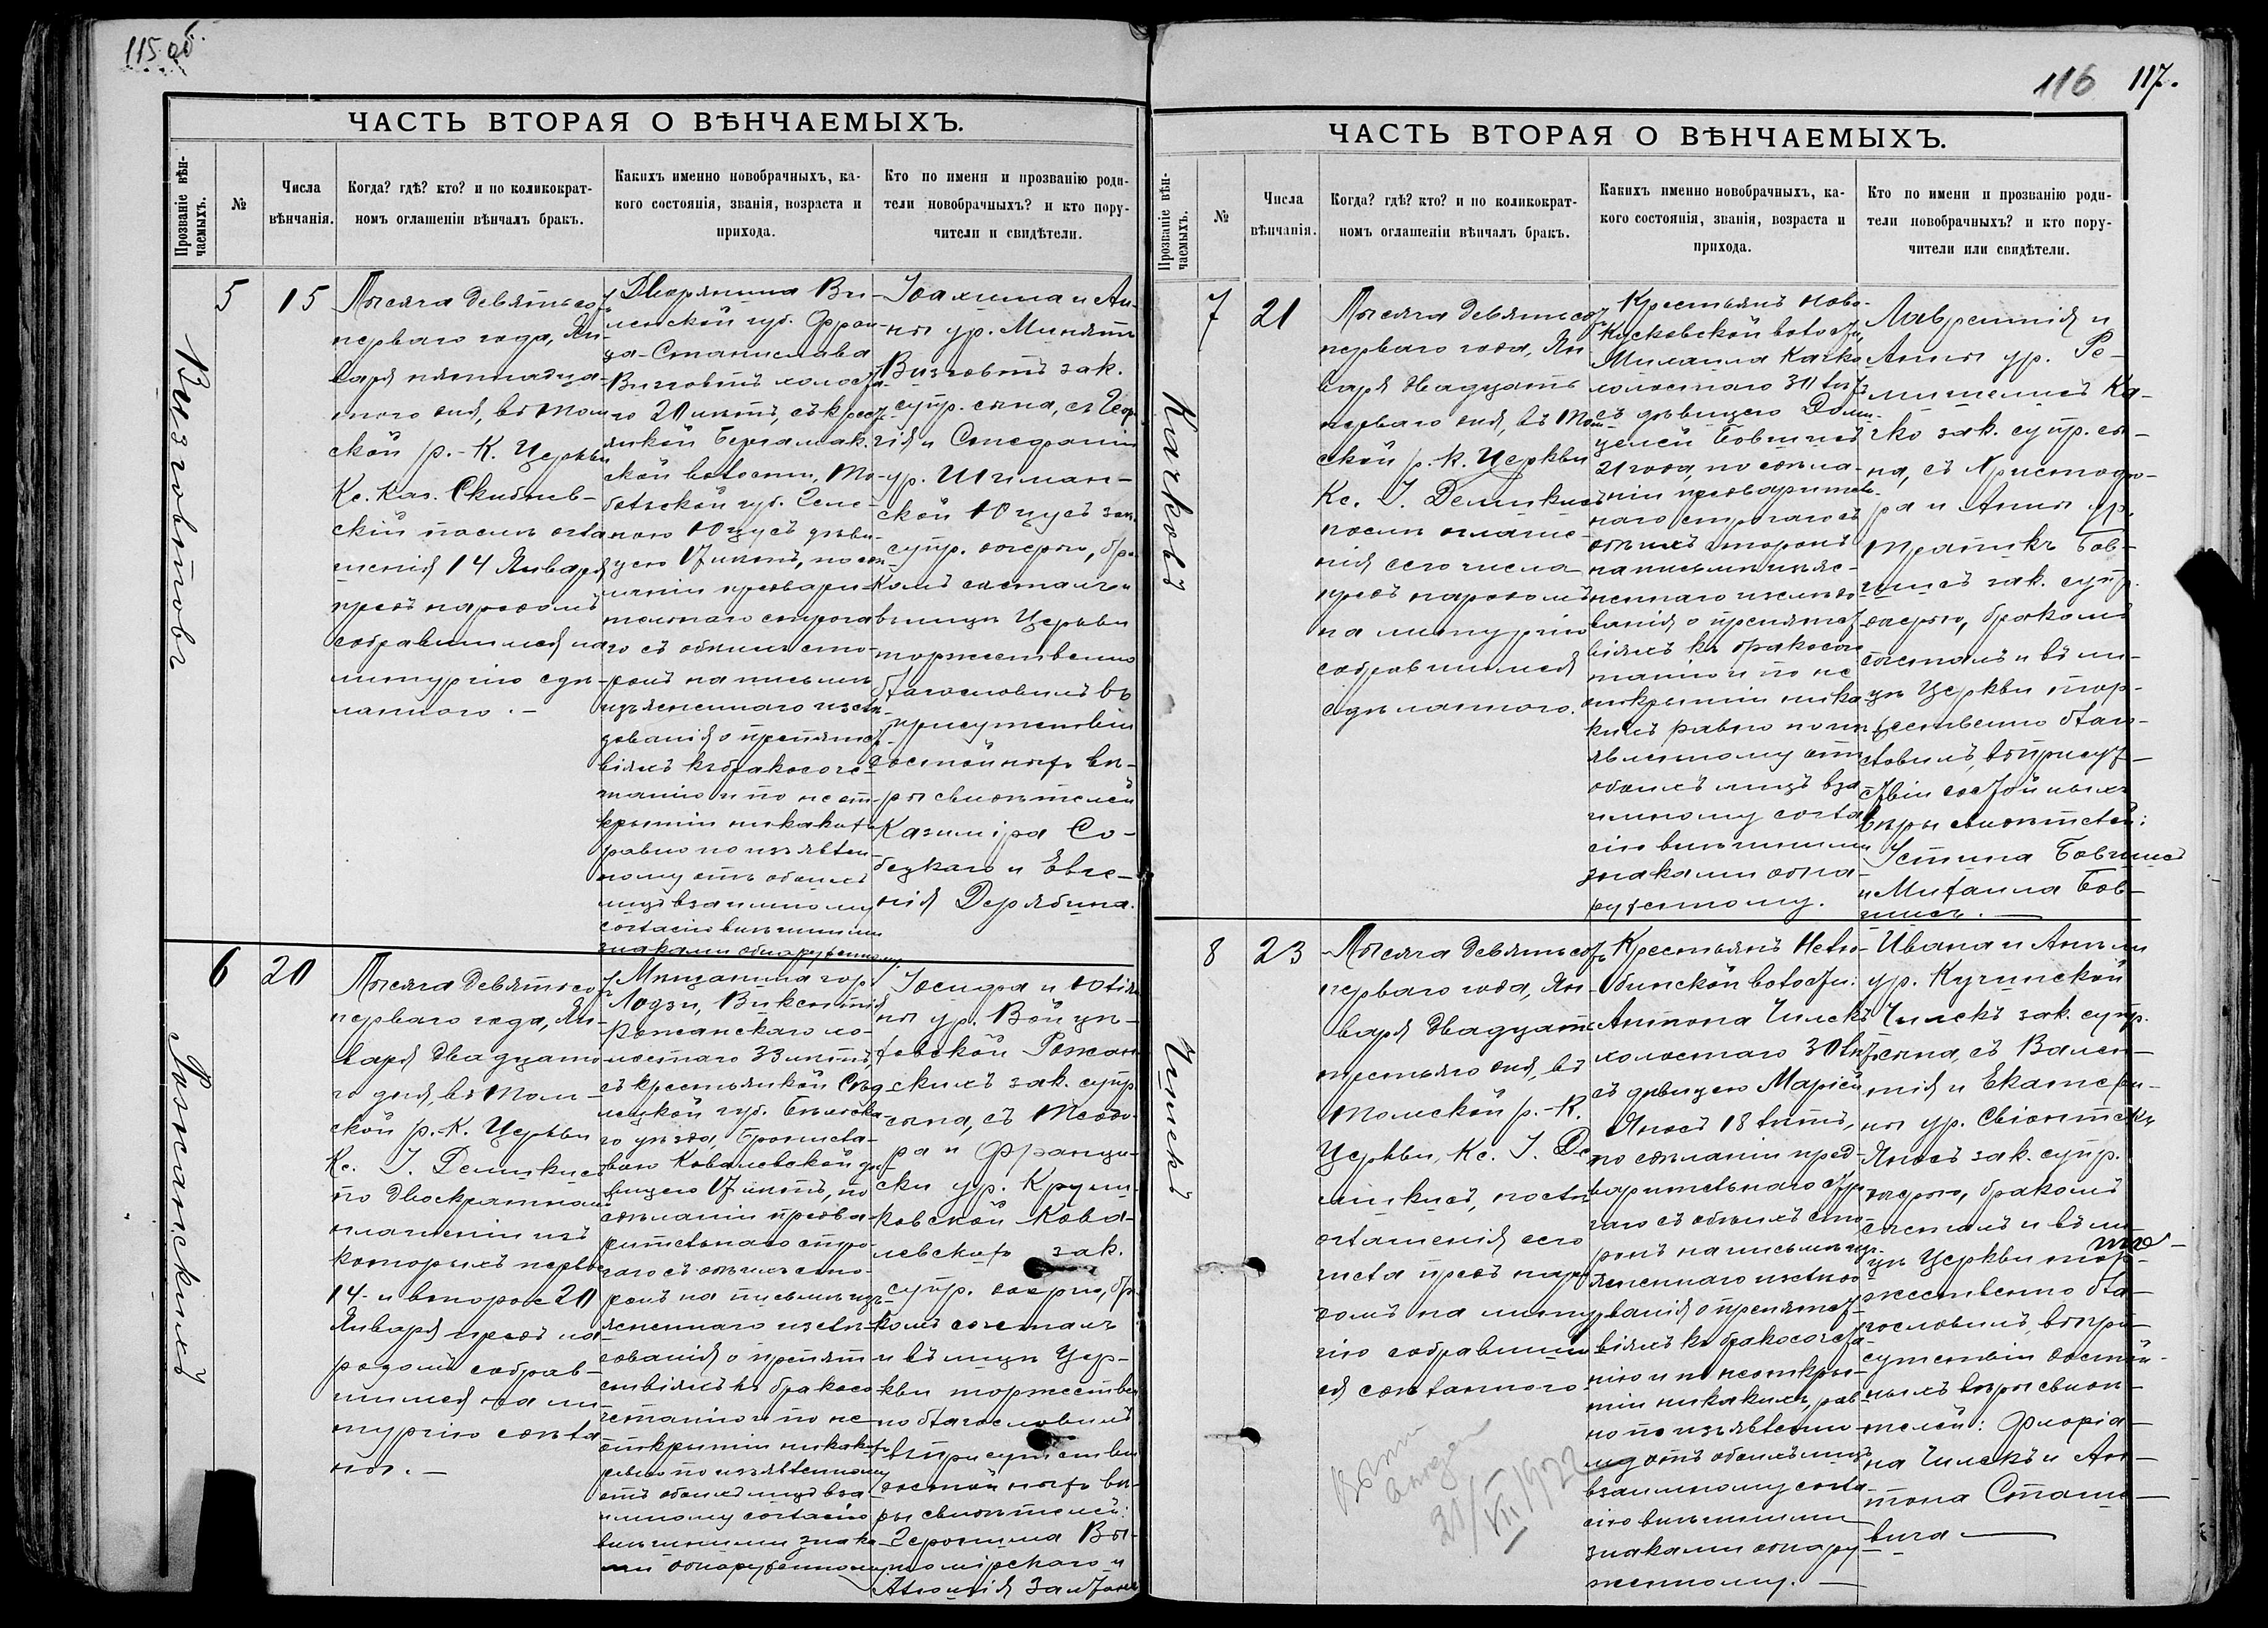 115 об.
ЧАСТЬ ВТОРАЯ О ВѢНЧАЕМЫХЪ.
Прозваніе вѣн-
чаемыхъ.
№
Числа
вѣнчанія.
Когда? гдѣ? кто? и по коликократ-
номъ оглашеніи вѣнчалъ бракъ.
Какихъ именно новобрачныхъ, ка-
кого состоянія, званія, возраста и
прихода.
Кто по имени и прозванію роди-
тели новобрачныхъ? и кто пору-
чители и свидѣтели.
Визговтовъ
5
15
Тысяча девятьсотъ
перваго года, Ян-
варя пятнадца-
таго дня, въ Том-
ской р.-К. Церкви
Кс. Каз.
скій послѣ огла-
шенія 14 Января
предъ народомъ
собравшимся на
литургію сдѣ-
ланнаго. —
Дворянина Ви-
ленской губ. Фран-
ца-Станислава
Визговтъ холоста-
го 20 лѣтъ, съ крест-
янкой
ской волости, То-
больской губ. Геле-
ною Юцусъ дѣви-
цею 17 лѣтъ, по сдѣ-
ланіи предвари-
тельнаго строга-
го съ обѣихъ сто-
ронъ на письмѣ
изъясненнаго изслѣ-
дованія о препятст-
віяхъ къ бракосоче-
танію и по неот-
крытіи никакихъ
равно по изъявлен-
ному отъ обоихъ
лицъ взаимному
согласію внѣшними
знаками обнаруженному.
Іоахима и Ан-
ны ур. Минятъ
Визговтъ зак.
супр. сына, съ Геор-
гія и Стефаніи
ур. Шиман-
ской Юцусъ зак.
супр. дочерью, бра-
комъ сочеталъ и
въ лицѣ Церкви
торжественно
благословилъ въ
присутствіи
достойныхъ вѣ-
ры свидѣтелей
Казиміра Со-
бецкаго и Евге-
нія Дерябина.
Рожанскихъ
6
20
Тысяча девятьсотъ
перваго года, Ян-
варя двадцата-
го дня, въ Том-
ской р.-К. Церкви
Кс. І. Демикисъ
по двоекратномъ
оглашеніи изъ
которыхъ первое
14 и второе 20
Января предъ на-
родомъ собрав-
шимся на ли-
тургію сдѣла-
ны. —
Мѣщанина гор.
Лодзи, Викентія
Рожанскаго хо-
лостаго 33 лѣтъ,
съ крестьянкой Сѣд-
лецкой губ. Бѣльска-
го уѣзда, Бронисла-
вою Ковалевской дѣ-
вицею 17 лѣтъ, по
сдѣланіи предва-
рительнаго стро-
гаго съ обѣихъ сто-
ронъ на письмѣ изъ-
ясненнаго изслѣ-
дованія о препят-
ствіяхъ къ бракосо-
четанію и по не-
открытіи никакихъ
равно по изъявленному
отъ обоихъ лицъ вза-
имному согласію
внѣшними знака-
ми обнаруженному.
Іосифа и Юлія-
ны ур. Войцѣ-
ховской Рожан-
скихъ зак. супр.
сына, съ Теодо-
ра и Францы-
ски ур. Крули-
ковской Кова-
левскихъ зак.
супр. дочерью, бра-
комъ сочеталъ
и въ лицѣ Цер-
кви торжествен-
но благословилъ
въ присутствіи
достойныхъ вѣ-
ры свидѣтелей:
Геронима Вы-
и
116 117.
ЧАСТЬ ВТОРАЯ О ВѢНЧАЕМЫХЪ.
Прозваніе вѣн-
чаемыхъ.
№
Числа
вѣнчанія.
Когда? гдѣ? кто? и по коликократ-
номъ оглашеніи вѣнчалъ бракъ.
Какихъ именно новобрачныхъ, ка-
кого состоянія, званія, возраста и
прихода.
Кто по имени и прозванію роди-
тели новобрачныхъ? и кто пору-
чители или свидѣтели.
Качковъ
7
21
Тысяча девятьсотъ
перваго года, Ян-
варя двадцать
перваго дня, въ Том-
ской р.-К. Церкви
Кс. І. Демикисъ
послѣ оглаше-
нія сего числа
предъ народомъ
на литургію
собравшимся
сдѣланнаго.
Крестьянъ Ново-
Кусковской волости,
Михаила Качко
холостаго 30 лѣтъ
съ дѣвицею Доми-
целей Бовшисъ
21 года, по сдѣла-
ніи предваритель-
наго строгаго съ
обѣихъ сторонъ
на письмѣ изъяс-
неннаго изслѣдо-
ванія о препятст-
віяхъ къ бракосоче-
танію и по не-
открытіи ника-
кихъ равно по изъ-
явленному отъ
обоихъ лицъ вза-
имному согла-
сію внѣшними
знаками обна-
руженному.
Лаврентія и
Анны ур. Ре-
Ка-
чко зак. супр. сы-
на, съ Христофо-
ра и Анны ур.
Бов-
шисъ зак. супр.
дочерью, бракомъ
сочеталъ и въ ли-
цѣ Церкви тор-
жественно благо-
словилъ, въ присут-
ствіи достойныхъ
вѣры свидѣтелей:
Устина Бовшисъ
и Михаила Бов-
шисъ. —
Чилекъ
8
23
Тысяча девятьсотъ
перваго года, Ян-
варя двадцать
третьяго дня, въ
Томской р.-К.
Церкви, Кс. І. Де-
микисъ, послѣ
оглашенія сего
числа предъ наро-
домъ на литур-
гію собравшим-
ся сдѣланнаго.
Крестьянъ Нелю-
бинской волости:
Антона Чилекъ
холостаго 30 лѣтъ
съ дѣвицею Маріей
Яносъ 18 лѣтъ,
по сдѣланіи пред-
варительнаго стро-
гаго съ обѣихъ сто-
ронъ на письмѣ изъ-
ясненнаго изслѣдо-
ванія о препятст-
віяхъ къ бракосочета-
нію и по неоткры-
тіи никакихъ, рав-
но по изъявленно-
му отъ обоихъ лицъ
взаимному согла-
сію внѣшними
знаками обнару-
женному. —
Ивана и Анѣли
ур. Кучинской
Чилекъ зак. супр.
сына, съ Вален-
тія и Екатери-
ны ур.
Яносъ зак. супр.
дочерью, бракомъ
сочеталъ и въ ли-
цѣ Церкви тор-
жественно бла-
гословилъ, въ при-
сутствіи достой-
ныхъ вѣры свидѣ-
телей: Флоріа-
на Чилекъ и Ан-
тона Сташе-
вича —
21/VII 1922